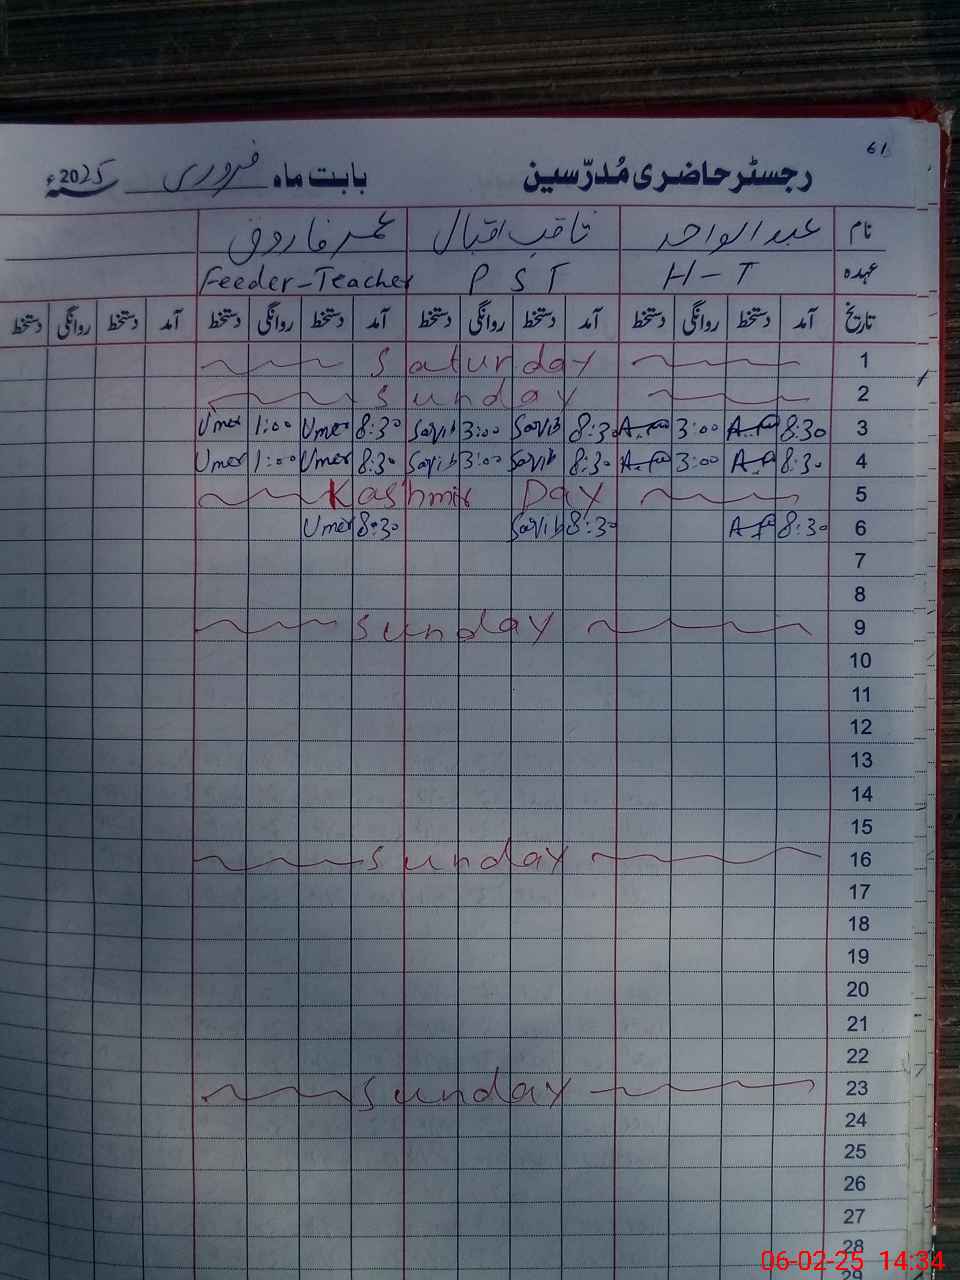 61
رجسٹر حاضری مُدرّسین بابت ماہ فروری 2025ء
نام عبدالواحد ثاقب اقبال عمر فاروق
عہدہ H-T PST Feeder-Teacher
تاریخ آمد دستخط روانگی دستخط آمد دستخط روانگی دستخط آمد دستخط روانگی دستخط آمد دستخط روانگی دستخط
1 Saturday
2 Sunday
3 8:30 3:00 8:30 Saqib 3:00 Saqib 8:30 Umer 1:00 Umer
4 8:30 3:00 8:30 Saqib 3:00 Saqib 8:30 Umer 1:00 Umer
5 Kashmir Day
6 8:30 8:30 Saqib 8:30 Umer
7
8
9 Sunday
10
11
12
13
14
15
16 Sunday
17
18
19
20
21
22
23 Sunday
24
25
26
27
28
29
06-02-25 14:34